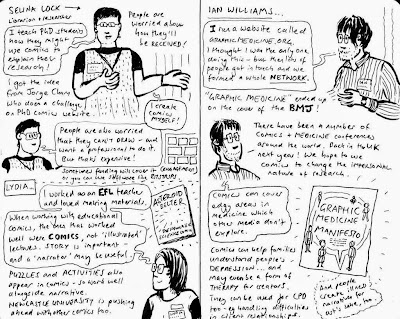 SELINA LOCK →
Librarian + researcher
I teach PhD students
how they might
use comics to
explain their
research!
I got the idea
from Jorge Cham,
who does a challenge
on PhD comics website.
People are
worried about
how they'll
be RECEIVED!
I create
COMICS
MYSELF!
People are also worried
that they can't DRAW – and
want a professional to do it.
But that's expensive!
Sometimes funding will cover it
or you can use software like
LYDIA...
I worked as an EFL teacher
and loved making materials.
When working with educational
comics, the ones that worked
well were COMICS, not 'illustrated'
lectures. STORY is important –
and a 'narrator' may be useful.
ASTEROID
BELTER
PUZZLES and ACTIVITIES also
appear in comics – so work well
alongside narrative.
NEWCASTLE UNIVERSITY is pushing
ahead with other comics too.
IAN WILLIAMS...
I run a website called
GRAPHICMEDICINE.ORG.
I thought I was the only one
doing this – but then lots of
people got in touch and we
formed a whole NETWORK.
"GRAPHIC MEDICINE" ended up
on the cover of the BMJ!
There have been a number of
COMICS + MEDICINE conferences
around the world. Back in the UK
next year! We hope to use
comics to change the IMPERSONAL
nature of research.
Comics can cover
edgy areas in
medicine which
other media don't
explore.
GRAPHIC
MEDICINE
MANIFESTO
Comics can help families
understand people's
DEPRESSION... and
may even be a form of
THERAPY for creators.
They can be used for CPD
too – eg handling difficulties
in client relationships.
And people
create
narrative for
art's sake, too.